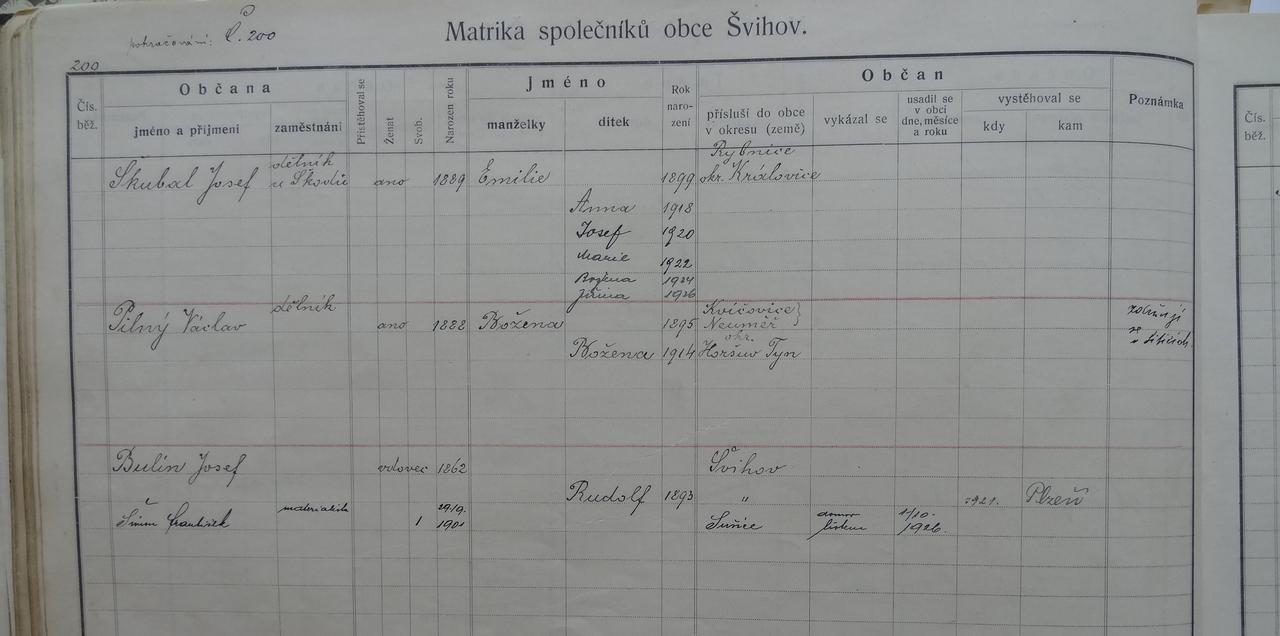 pokračování: Č. 200
Matrika společníků obce Švihov.
200
Čís. běž.
Občana
jméno a příjmení
zaměstnání
Přistěhoval se
Ženat
Svob.
Narozen roku
Jméno
manželky
dítek
Rok naro- zení
Občan
přísluší do obce v okresu (země)
vykázal se
usadil se v obci dne, měsíce a roku
vystěhoval se
kdy
kam
Poznámka
Čís. běž.
dělník Rybnice
Škubal Josef u Škodů ano 1889 Emilie 1899 okr. Kralovice
Anna 1918
Josef 1920
Marie 1922
Božena 1924
Jiřina 1926
dělník Kvíčovice
Pilný Václav ano 1888 Božena 1895 Neuměř
se
okr.
Božena 1914 Horšův Týn
Bulín Josef vdovec 1862 Švihov
Rudolf 1893 " 1921. Plzeň
29/9. domov 1/10.
František 1 1901 Sušice listem 1926.